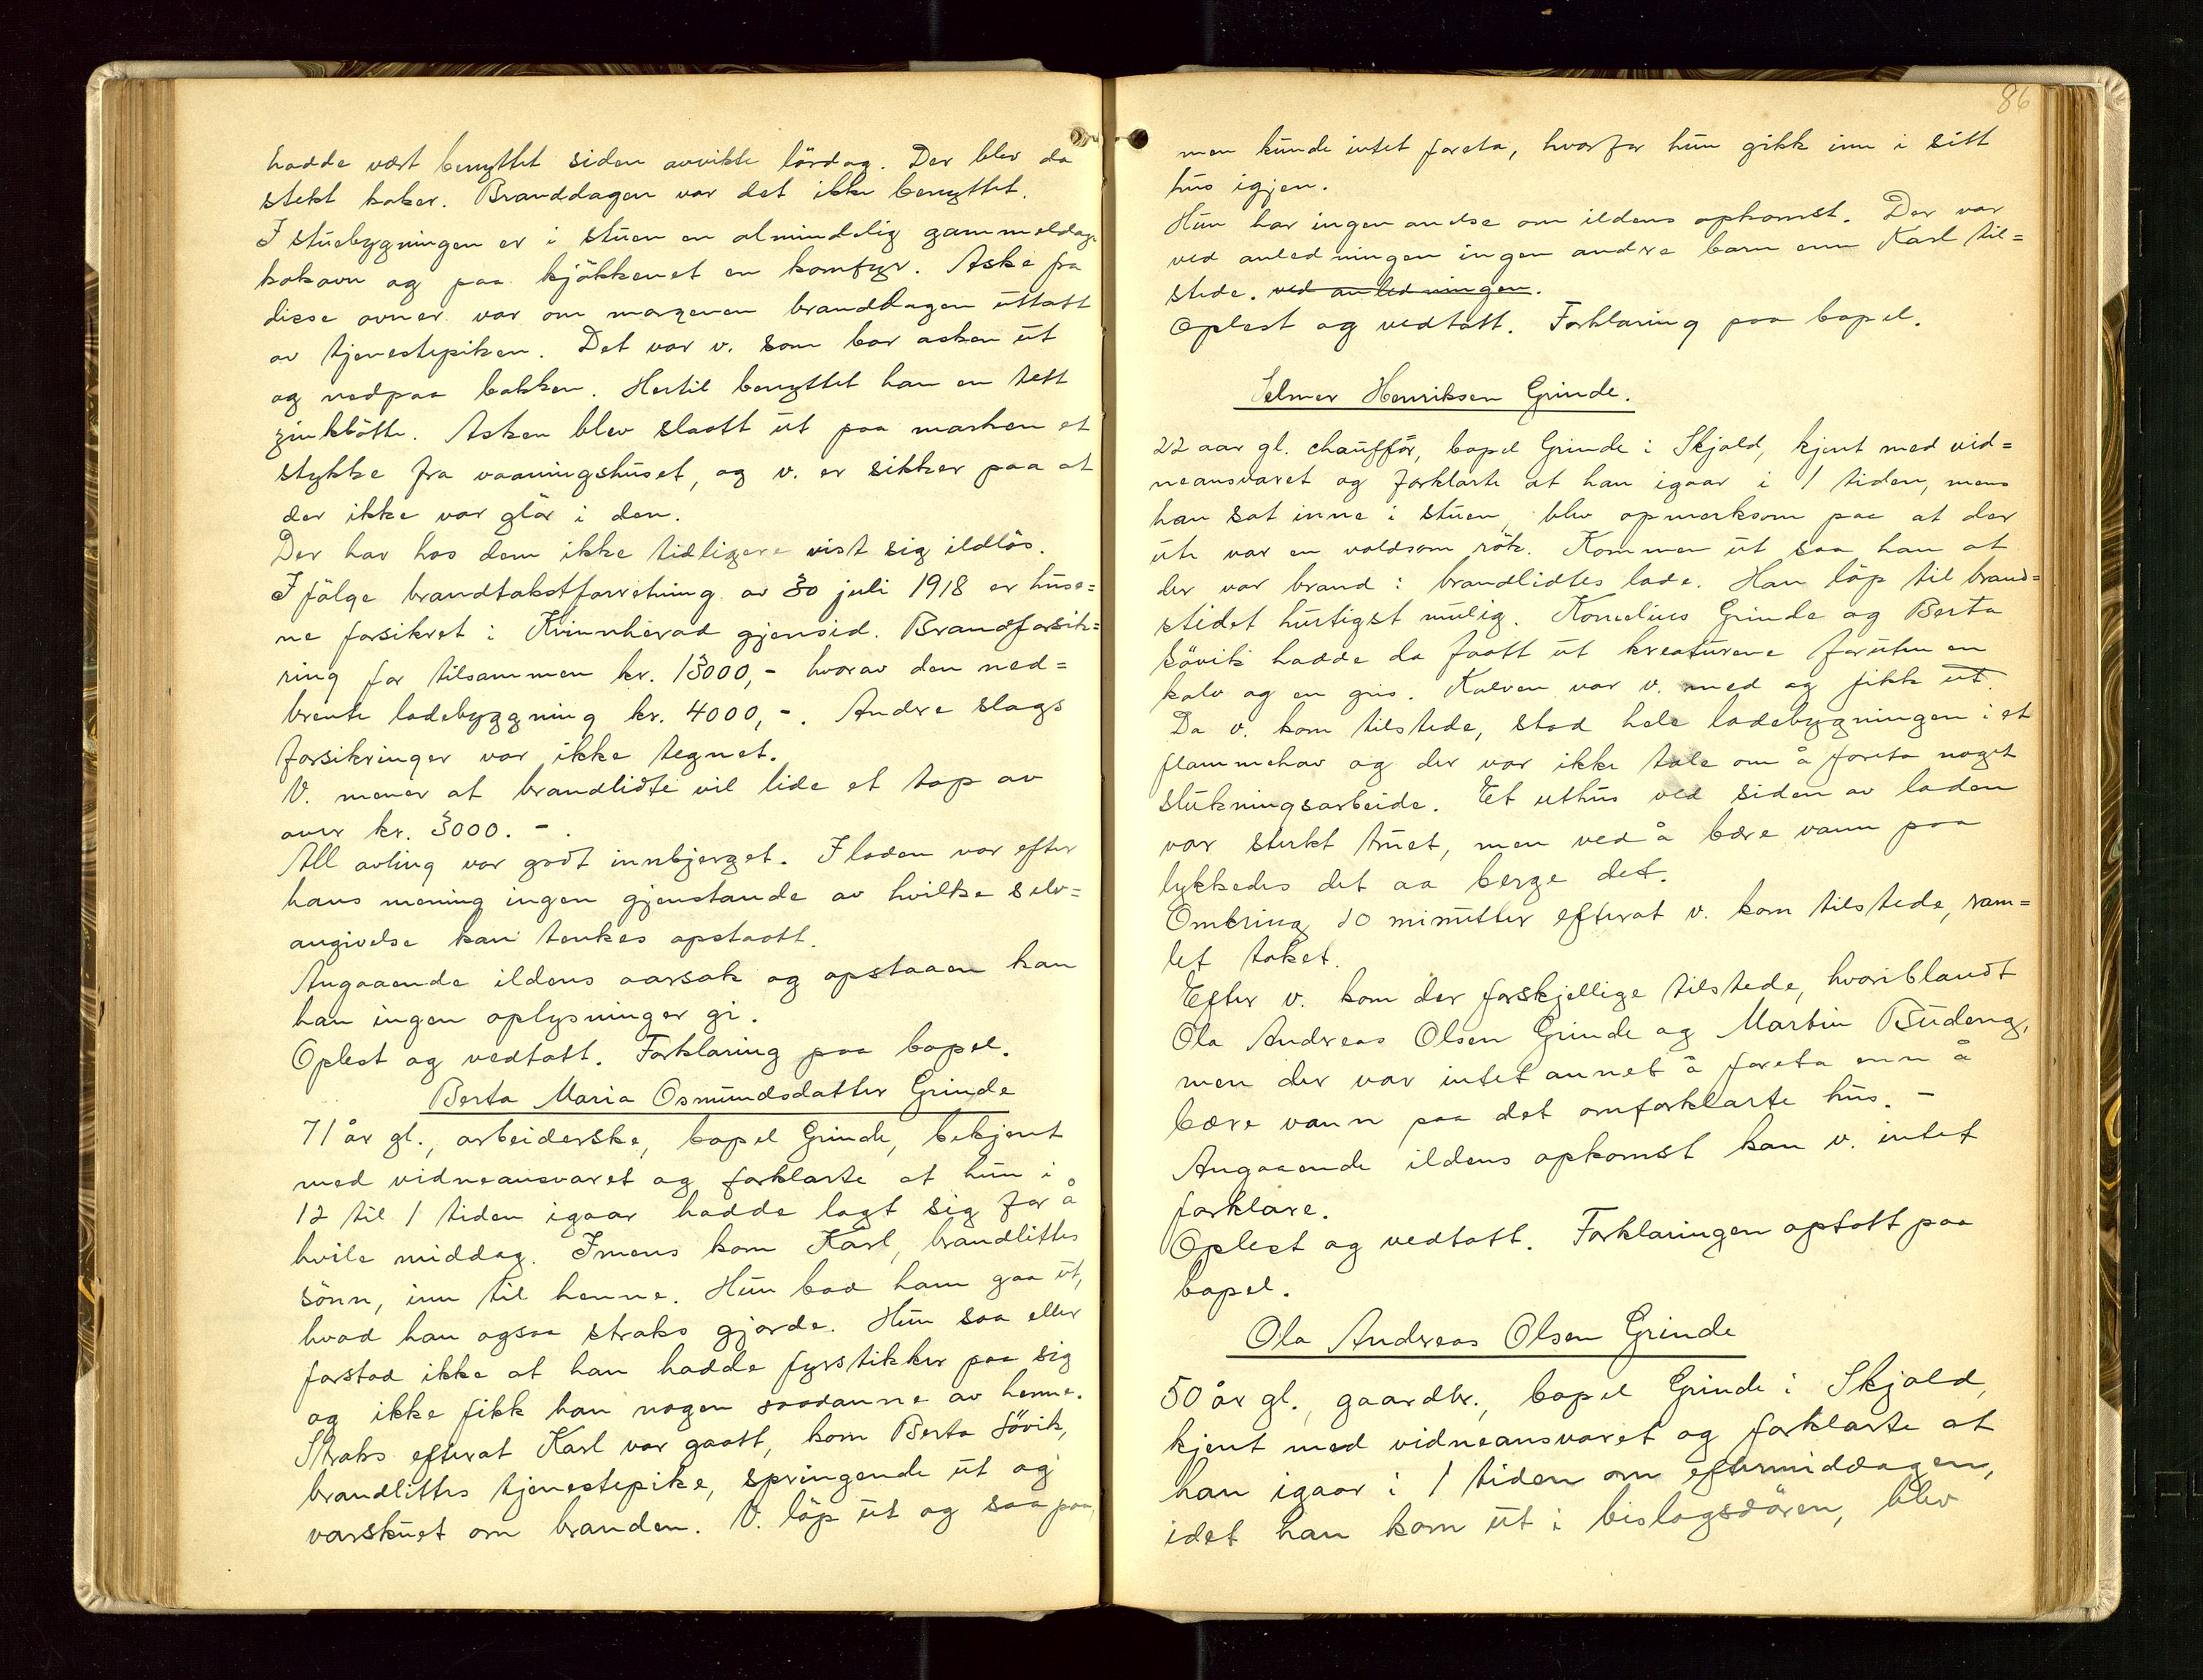 hadde vært benyttet siden avvikte lördag. Der blev da
stekt kaker. Branddagen var det ikke benyttet.
I stuebygningen er i stuen en almindelig gammeldags
kokovn og paa kjökkenet en komfyr. Aske fra
disse ovner var om morgenen branddagen uttatt
av tjenestepiken. Det var v. som bar asken ut
og nedpaa bakken. Hertil benyttet han en tett
zinkbötte. Asken blev slaatt ut paa marken et
stykke fra vaaningshuset, og v. er sikker paa at
der ikke var glör i den.
Der har hos dem ikke tidligere vist sig ildlös.
Ifölge brandtakstforretning av 30 juli 1918 er huse=
ne forsikret i Kvinnherad gjensid. Brandforsik=
ring for tilsammen kr. 13000,- hvorav den ned=
brente ladebyggning kr. 4000,-. Andre slags
forsikringer var ikke tegnet.
V. mener at brandlidte vil lide et tap av
over kr. 3000.-.
All avling var godt innbjerget. I laden var efter
hans mening ingen gjenstande av hvilke selv=
angivelse kan tenkes opstaatt.
Angaaende ildens aarsak og opstaaen kan
han ingen oplysninger gi.
Oplest og vedtatt. Forklaring paa bopel.
Berta Maria Osmundsdatter Grinde
71 år gl., arbeiderske, bopel Grinde, bekjent
med vidneansvaret og forklarte at hun i
12 til 1 tiden igaar hadde lagt sig for å
hvile middag. Imens kom Karl, brandlittes
sönn, inn til henne. Hun bad ham gaa ut,
hvad han ogsaa straks gjorde. Hun saa eller
forstod ikke at han hadde fyrstikker paa sig
og ikke fikk han nogen saadanne av henne.
Straks efterat Karl var gaatt, kom Berta Sövik,
brandlittes tjenestepike, springende ut og
varskuet om branden. V. löp ut og saa paa,
86
men kunde intet foreta, hvorfor hun gikk inn i sitt
hus igjen.
Hun har ingen anelse om ildens opkomst. Der var
ved anledningen ingen andre barn enn Karl til=
stede. ved anledningen.
Oplest og vedtatt. Forklaring paa bopel.
Selmer Henriksen Grinde.
22 aar gl. chaufför, bopel Grinde i Skjold, kjent med vid=
neansvaret og forklarte at han igaar i 1 tiden, mens
han sat inne i stuen, blev opmerksom paa at der
ute var en voldsom rök. Kommen ut saa han at
der var brand i brandlidtes lade. Han löp til brand=
stedet hurtigst mulig. Kornelius Grinde og Berta
Sövik hadde da faatt ut kreaturene foruten en
kalv og en gris. Kalven var v. med og fikk ut.
Da v. kom tilstede, stod hele ladebygningen i et
flammehav og der var ikke tale om å foreta noget
slukningsarbeide. Et uthus ved siden av laden
var sterkt truet, men ved å bære vann paa
lykkedes det aa berge det.
Omkring 10 minutter efterat v. kom tilstede, ram=
let taket.
Efter v. kom der forskjellige tilstede, hvoriblandt
Ola Andreas Olsen Grinde og Martin Budeng,
men der var intet annet å foreta enn å
bære vann paa det omforklarte hus. -
Angaaende ildens opkomst kan v. intet
forklare.
Oplest og vedtatt. Forklaringen optatt paa
bopel.
Ola Andreas Olsen Grinde
50 år gl., gaardbr., bopel Grinde i Skjold,
kjent med vidneansvaret og forklarte at
han igaar i 1 tiden om eftermiddagen,
idet han kom ut i bislagsdören, blev